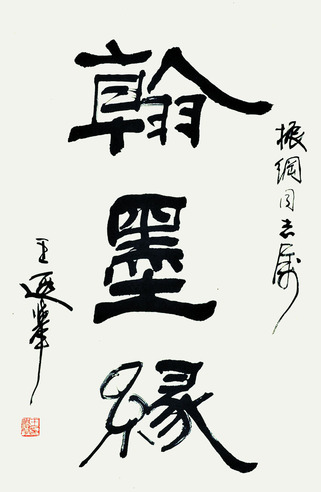 振纲同志属
翰墨缘
王遐举